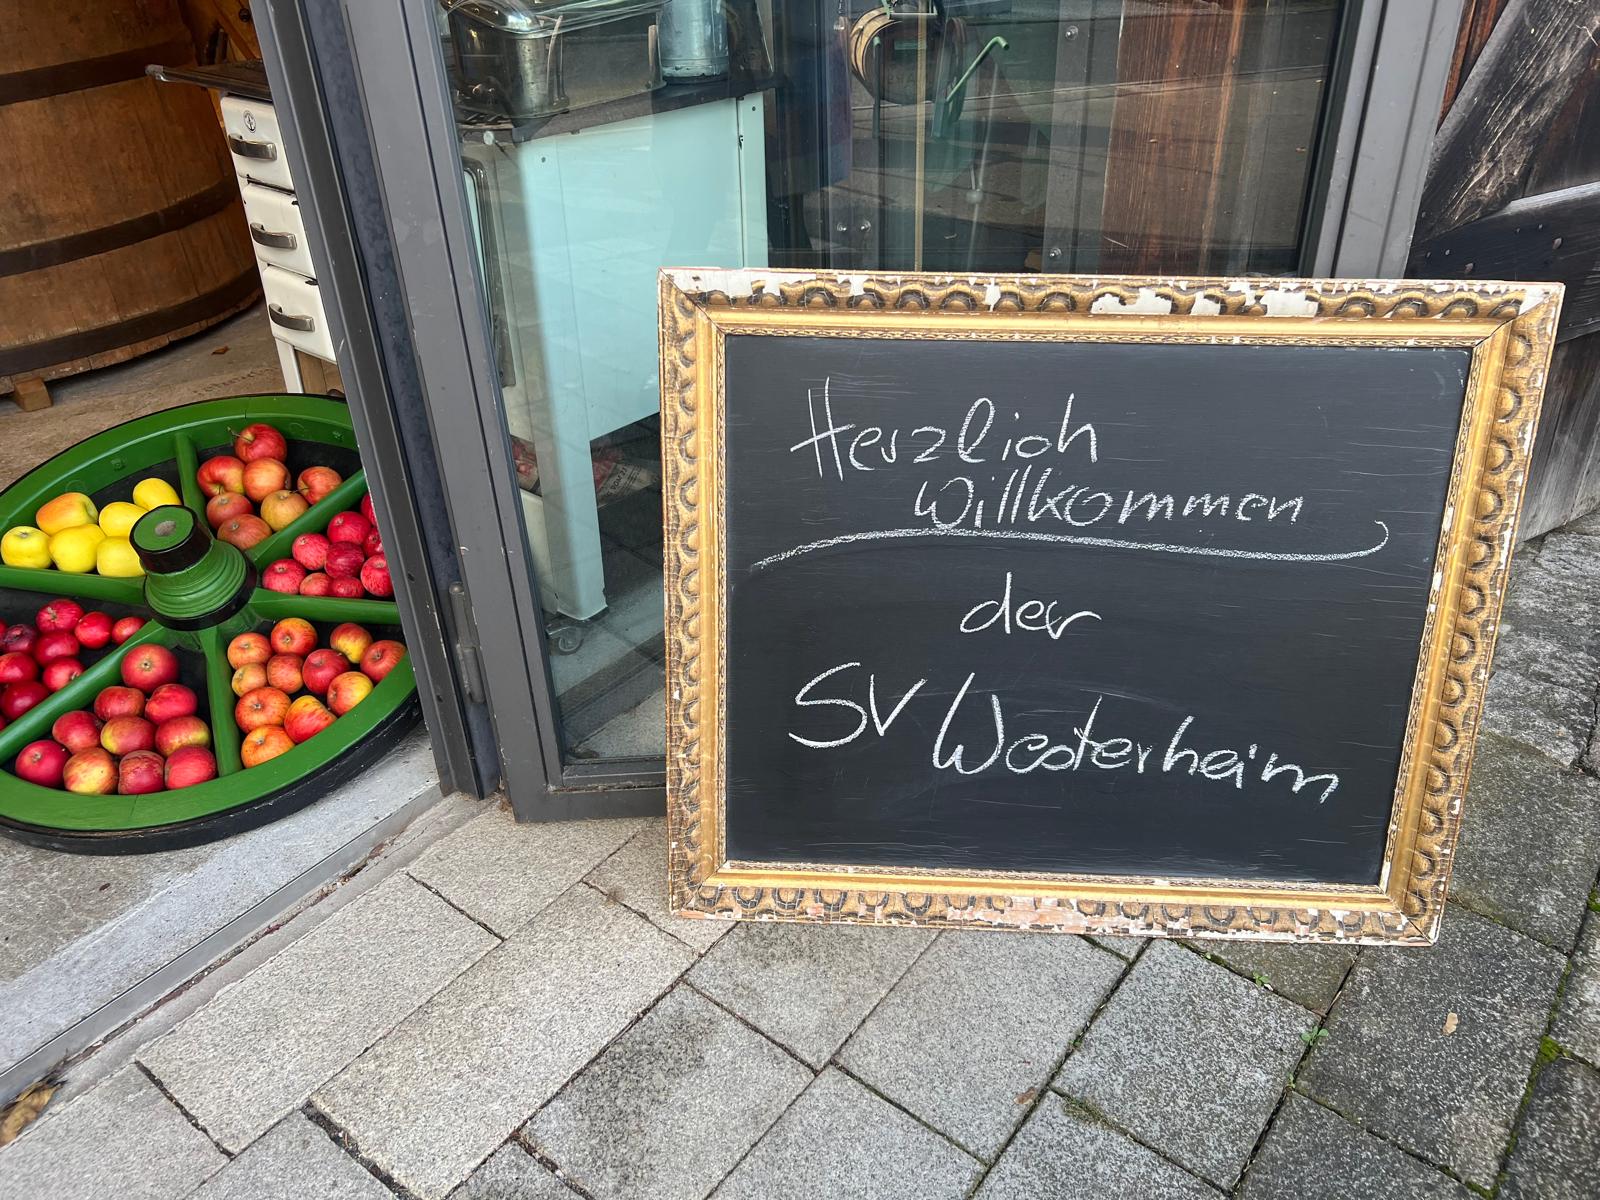 Herzlich
willkommen
der
SV Westerheim